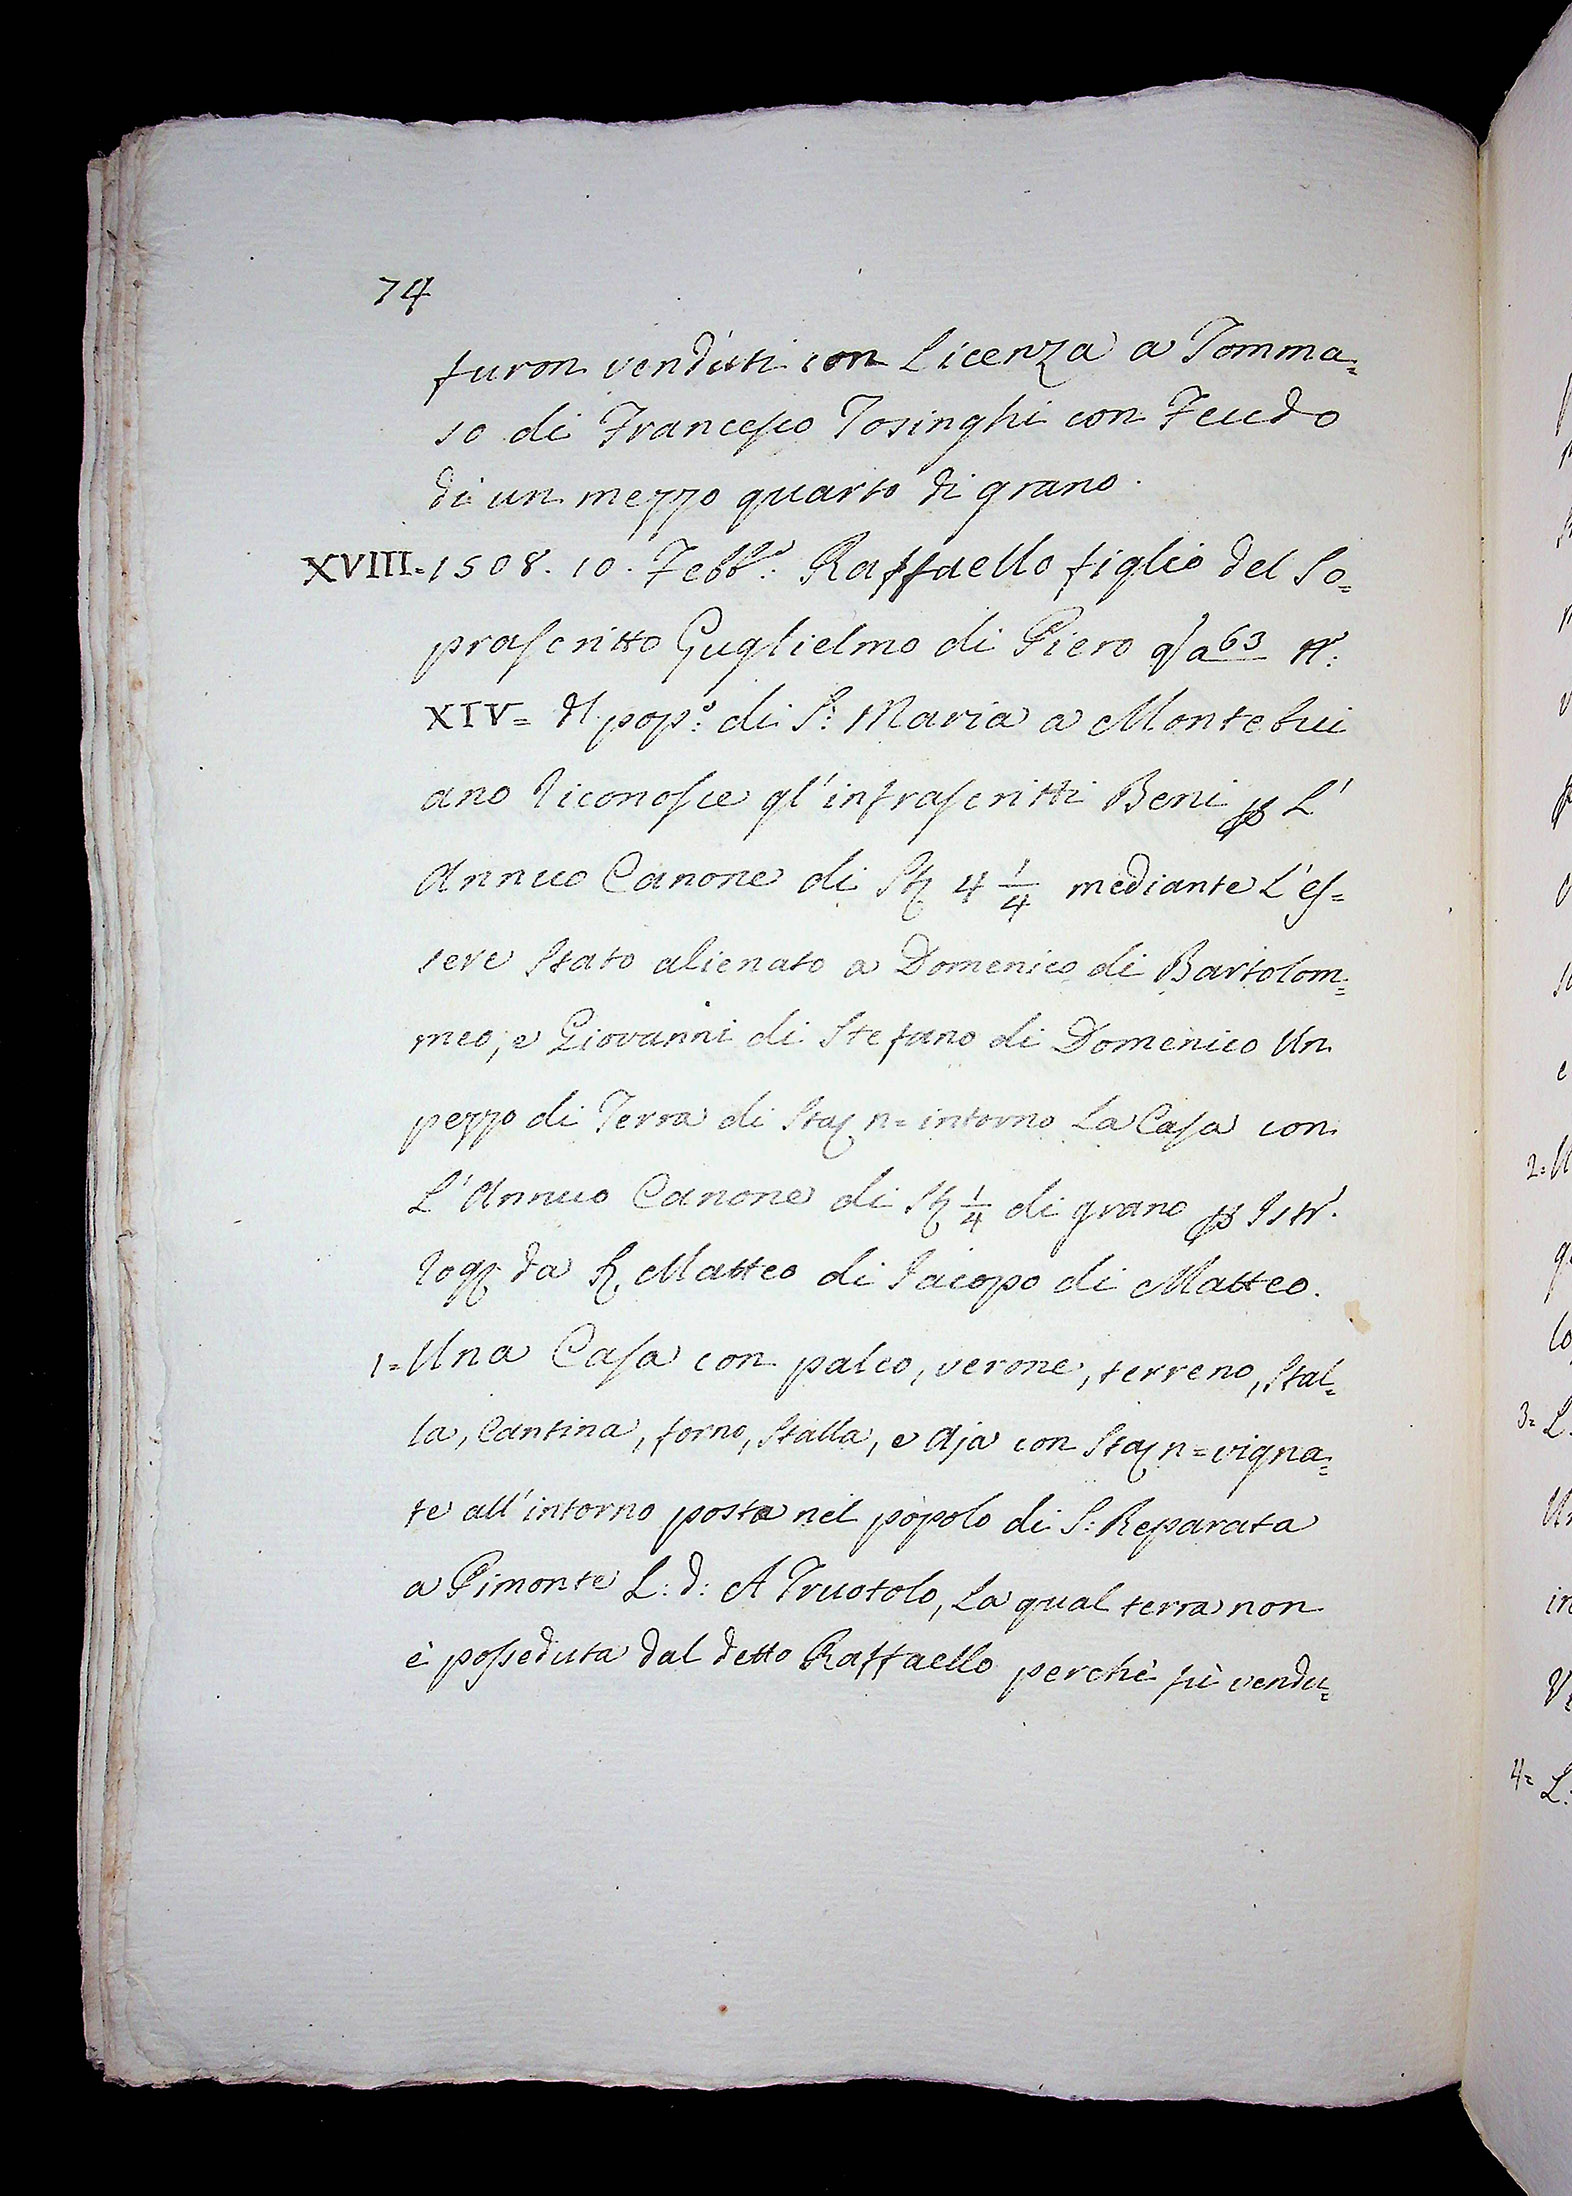 74
furon venduti con Licenza a Tomma=
so di Francesco Tosinghi con Feudo
di un mezzo quarto di grano.
XVIII= 1508. 10. Febb.o: Raffaello figlio del So=
prascritto Guglielmo di Piero 63 N:
XIV= d pop:o di S: Maria a Montebui
ano riconosce gl'infrascritti Beni p L'
Annuo Canone di St 4 1/4 mediante L'es=
sere stato alienato a Domenico di Bartolom=
meo, e Giovanni di Stefano di Domenico Un
pezzo di Terra di Sta n= intorno La Casa con
L'Annuo Canone di St 1/4 di grano p Istr.
rog da S Matteo di Jacopo di Matteo.
1= Una Casa con palco, verone, terreno, stal=
la, Cantina, forno, stalla, e Aja con Sta n= vigna=
te all'intorno posta nel popolo di S: Reparata
a Pimonte L: d: A Truotolo, La qual terra non
è posseduta dal detto Raffaello perchè fù vendu=
2=
3= L.
4= L: